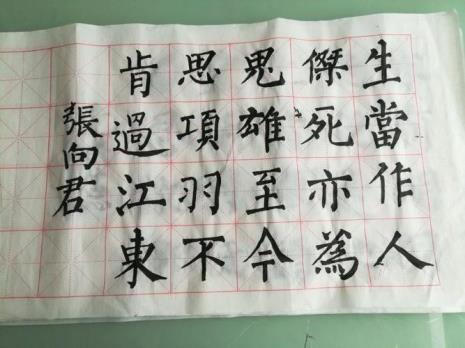 生當作人
傑死亦為
鬼雄至今
思項羽不
肯過江東
張向君